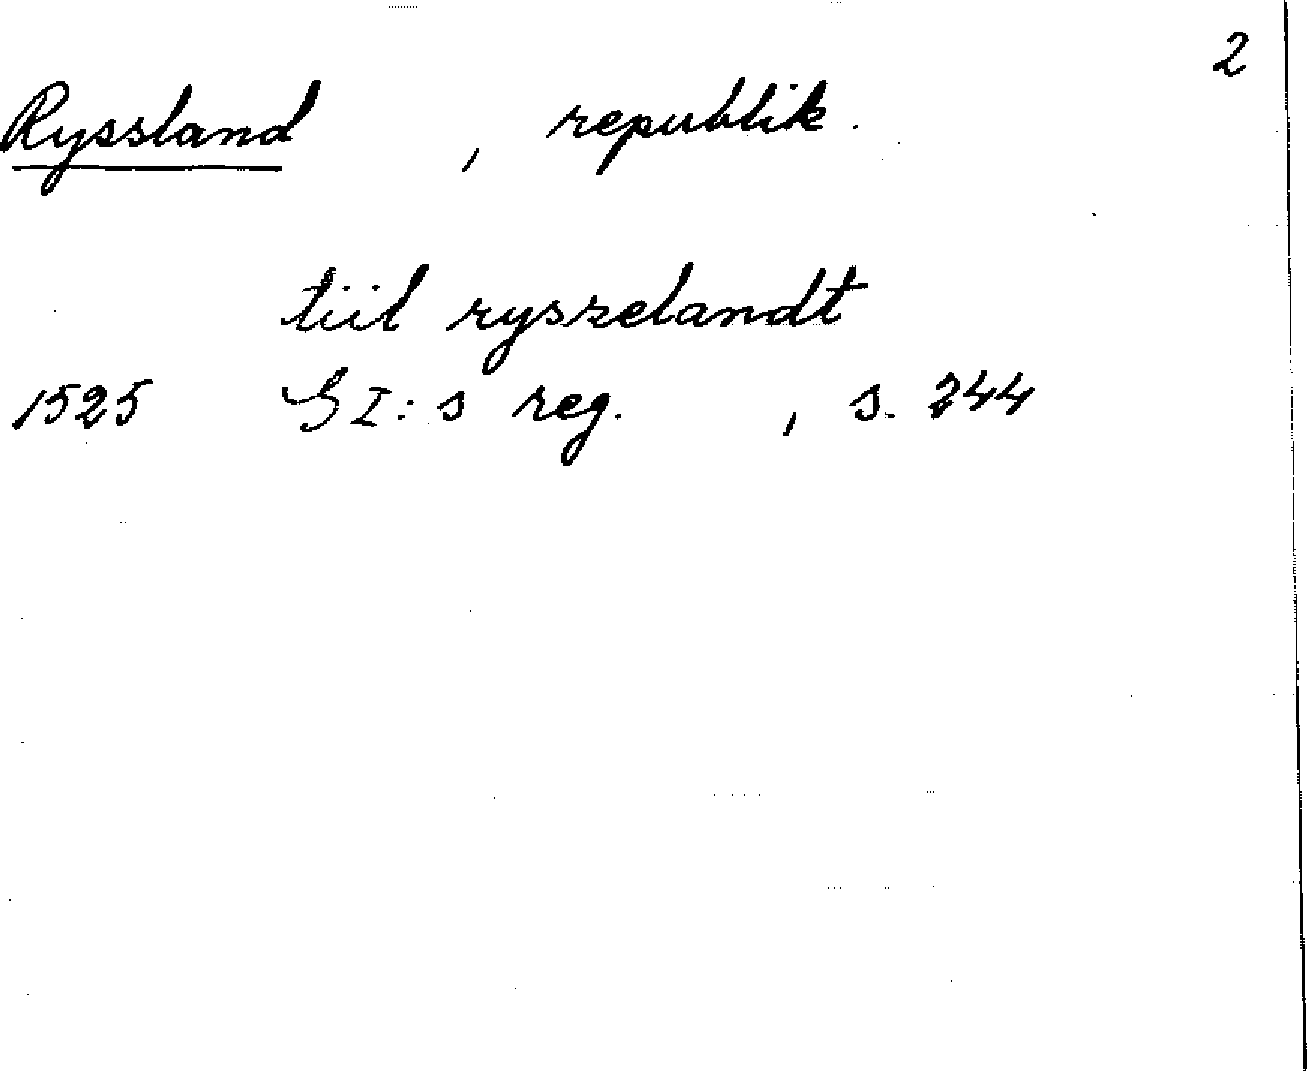 2
Ryssland , republik.
tiil ryszelandt
1525 GI:s reg. , s. 244